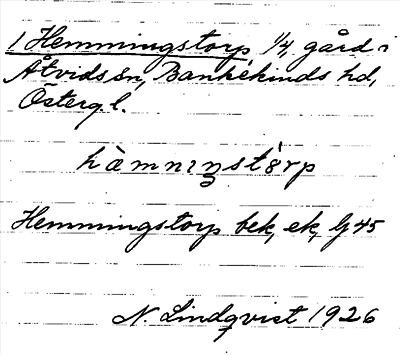 1 Hemmingstorp 1/4, gård i
Åtvids sn, Bankekinds hd,
Östergl.
hàmnıŋstòrp
Hemmingstorp bek, ek, Gj 45
N. Lindqvist 1926